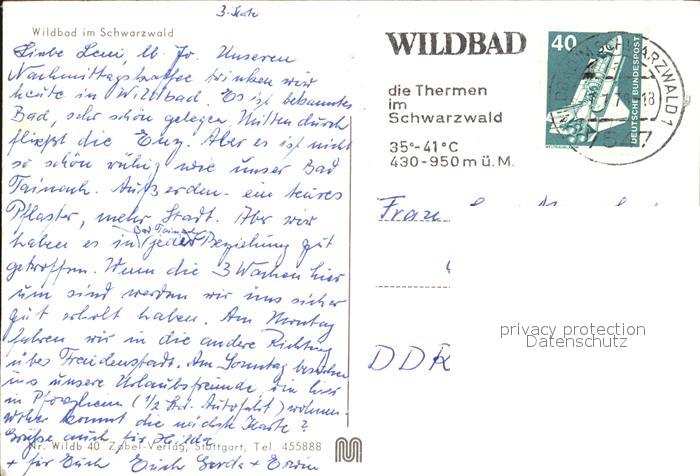 3. Karte
Wildbad im Schwarzwald
Liebe Leni, U. Fr. Unseren
Nachmittagskaffee trinken wir
heute in Wildbad. Es ist bekanntes
Bad, sehr schön gelegen. Mitten durch
fließt die Enz. Aber es ist nicht
so schön ruhig wie unser Bad
Teinach. Außerdem ein teures
Pflaster, mehr Stadt. Aber wir
haben es in Bad Teinach jeder Beziehung gut
getroffen. Wenn die 3 Wochen hier
um sind werden wir uns sicher
gut erholt haben. Am Montag
fahren wir in die andere Richtung
über Freudenstadt. Am Sonntag besuchen
uns unsere Urlaubsfreunde, die hier
in Pforzheim (1/2 Std. Autofahrt) wohnen.
Woher kommt die nächste Karte?
Grüße auch für Hilda
Nr. Wildb 40 Zobel-Verlag, Stuttgart, Tel. 455888
+ für Euch Euch Gerda + Erwin
WILDBAD
die Thermen
im
Schwarzwald
35°-41°C
430-950 m ü. M.
40
DEUTSCHE BUNDESPOST
SCHWARZWALD 1
Frau
DDR
privacy protection
Datenschutz